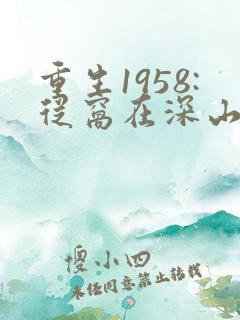 重生1958:
从窝在深山
傻小四
未经同意禁止转载